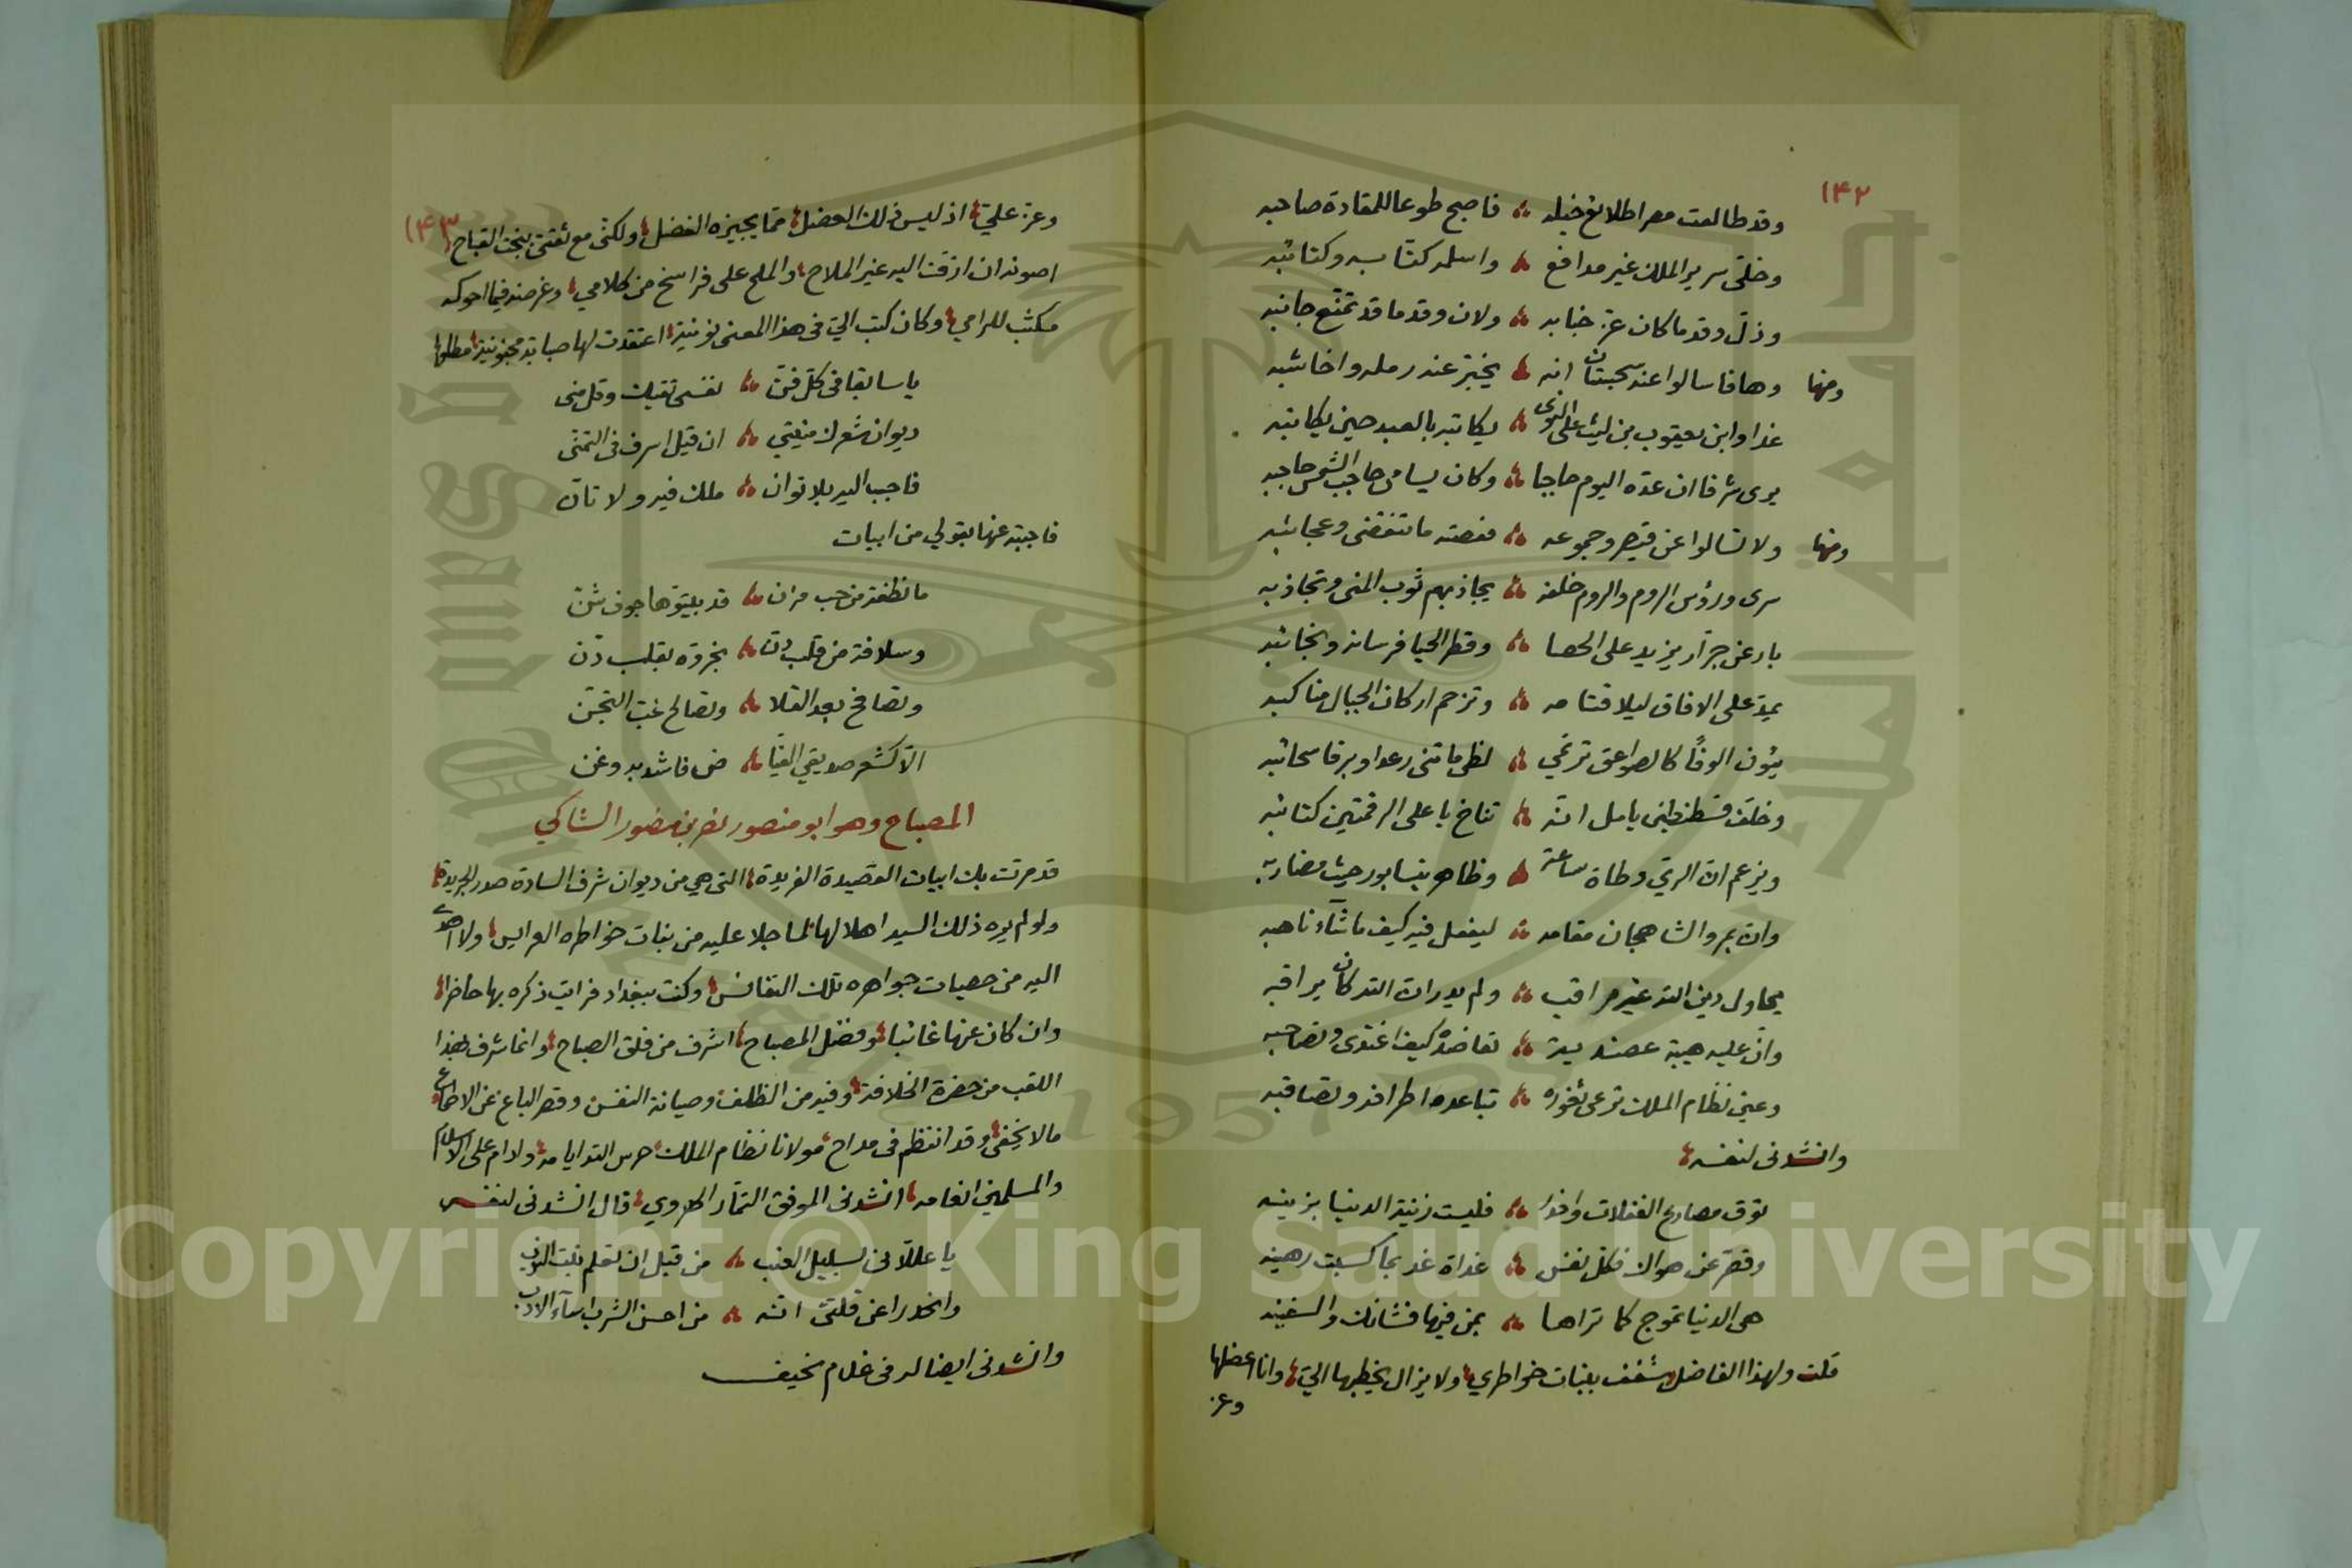 ١٤٢
وقد طالعت مصرا طلائع خيله ؞ فاصبح طوعا للمقادة صاحبه
وخلّى سرير الملك غير مدافع ؞ واسلمه كتّابه وكتائبه
وذلّ وقدما كان عزّ جنابه ؞ ولان وقدما قد تمنّع جانبه
ومنها وها فاسالوا عنه سجستان انه ؞ يخبّر عنه رمله واخاشبه
غدا وابن يعقوب بن ليث على النوى ؞ يكاتبه بالعبد حين يكاتبه
يرى شرفا ان عدّه اليوم حاجبا ؞ وكان يسامى حاجب الشمس حاجبه
ومنها ولا تسالوا عن قيصر وجموعه ؞ فقصته ما تنقضى وعجائبه
سرى ورؤس الروم والروم خلفه ؞ يجاذبهم ثوب المنى وتجاذبه
بارعن جرّار يزيد على الحصا ؞ وقطر الحيا فرسانه ونجائبه
يمدّ على الافاق ليلا قتامه ؞ وتزحم اركان الجبال مناكبه
الوفًا كالصواعق ترتمي ؞ لظى ما تنى رعدا وبرقا سحائبه
وخلّف قسطنطين يامل انّه ؞ تناخ باعلى الرقمتين كتائبه
ويزعم انّ الريّ وطاة ساعة ؞ وظاهر نيسابور حيث مضاربه
وانّ بمرو الشاهجان مقامه ؞ ليفعل فيه كيف ما شآء ناهبه
يحاول دين الله غير مراقب ؞ ولم يدر انّ الله كان يراقبه
وانّ عليه هيبة عضديّة ؞ كيف اغتدى وتصاحبه
وعين نظام الملك ترعى ثغوره ؞ تباعده اطرافه وتصاقبه
وانشدنى لنفسه
توق مصارع الغفلات واحذر ؞ فليست زينة الدنيا بزينه
وقصّر عن هواك فكلّ نفس ؞ غداة غد بما كسبت رهينه
هى الدنيا تموج كما تراها ؞ بمن فيها فشانك والسفينه
قلت ولهذا الفاضل شغف ببنات خواطري ولا يزال يخطبها اليّ وانا اعضلها
وعز
١٤٣
وعز عليّ اذ ليس ذلك العضل ممّا يجيزه الفضل ولكنّى مع ثقتى القباح
اصونه ان ازفّ اليه غير الملاح والملح على فراسخ من كلامي وغرضه فيما احوكه
مكثب للرامي وكان كتب اليّ فى هذا المعنى نونية اعتقدت لها صبابة مجنونية مطلعها
يا سابقا فى كلّ فنّ ؞ نفسى تقيك وقل منى
ديوان شعرك منيتي ؞ ان قيل اسرف فى التمنّى
فاجب اليه بلا توان ؞ ملك فيه ولا تانّ
فاجبته عنها بقولي من ابيات
ما نطفة من حب مزن ؞ قد بيتوها جوف شنّ
وسلافة من قلب دنّ ؞ بقلب دنّ
وتصافح بعد القلا ؞ وتصالح غبّ التجنّى
الّا كشعر صديقي الفيّا ؞ ض فاشد به وغن
المصباح وهو ابو منصور نصر بن منصور الشاكي
قد مرّت بك ابيات القصيدة الفريدة التى هي من ديوان شرف السادة صدر الجريدة
ولو لم يره ذلك السيد اهلا لها لما جلا عليه من بنات خواطره العرايس ولا اهدى
اليه من حصيات جواهره تلك النفائس وكنت ببغداد فرايت ذكره بها حاضرا
وان كان عنها غائبا وفضل المصباح اشرف من فلق الصباح وانما شرف بهذا
اللقب من حضرة الخلافة وفيه من الظلف وصيانة النفس وقصر الباع عن الاطماع
ما لا يخفى وقد انتظم فى مداح مولانا نظام الملك حرس الله ايامه وادام على الاسلام
والمسلمين انعامه انشدنى الموفق التمّار الهروي قال انشدنى لنفسه
يا عللانى بسليل العنب ؞ من قبل ان تعلم بنت النوب
واعذرا عن قلتى انّه ؞ من احسن الشرب اسآء الادب
وانشدنى ايضا له فى غلام نحيف
Copyright © King Saud University
1957